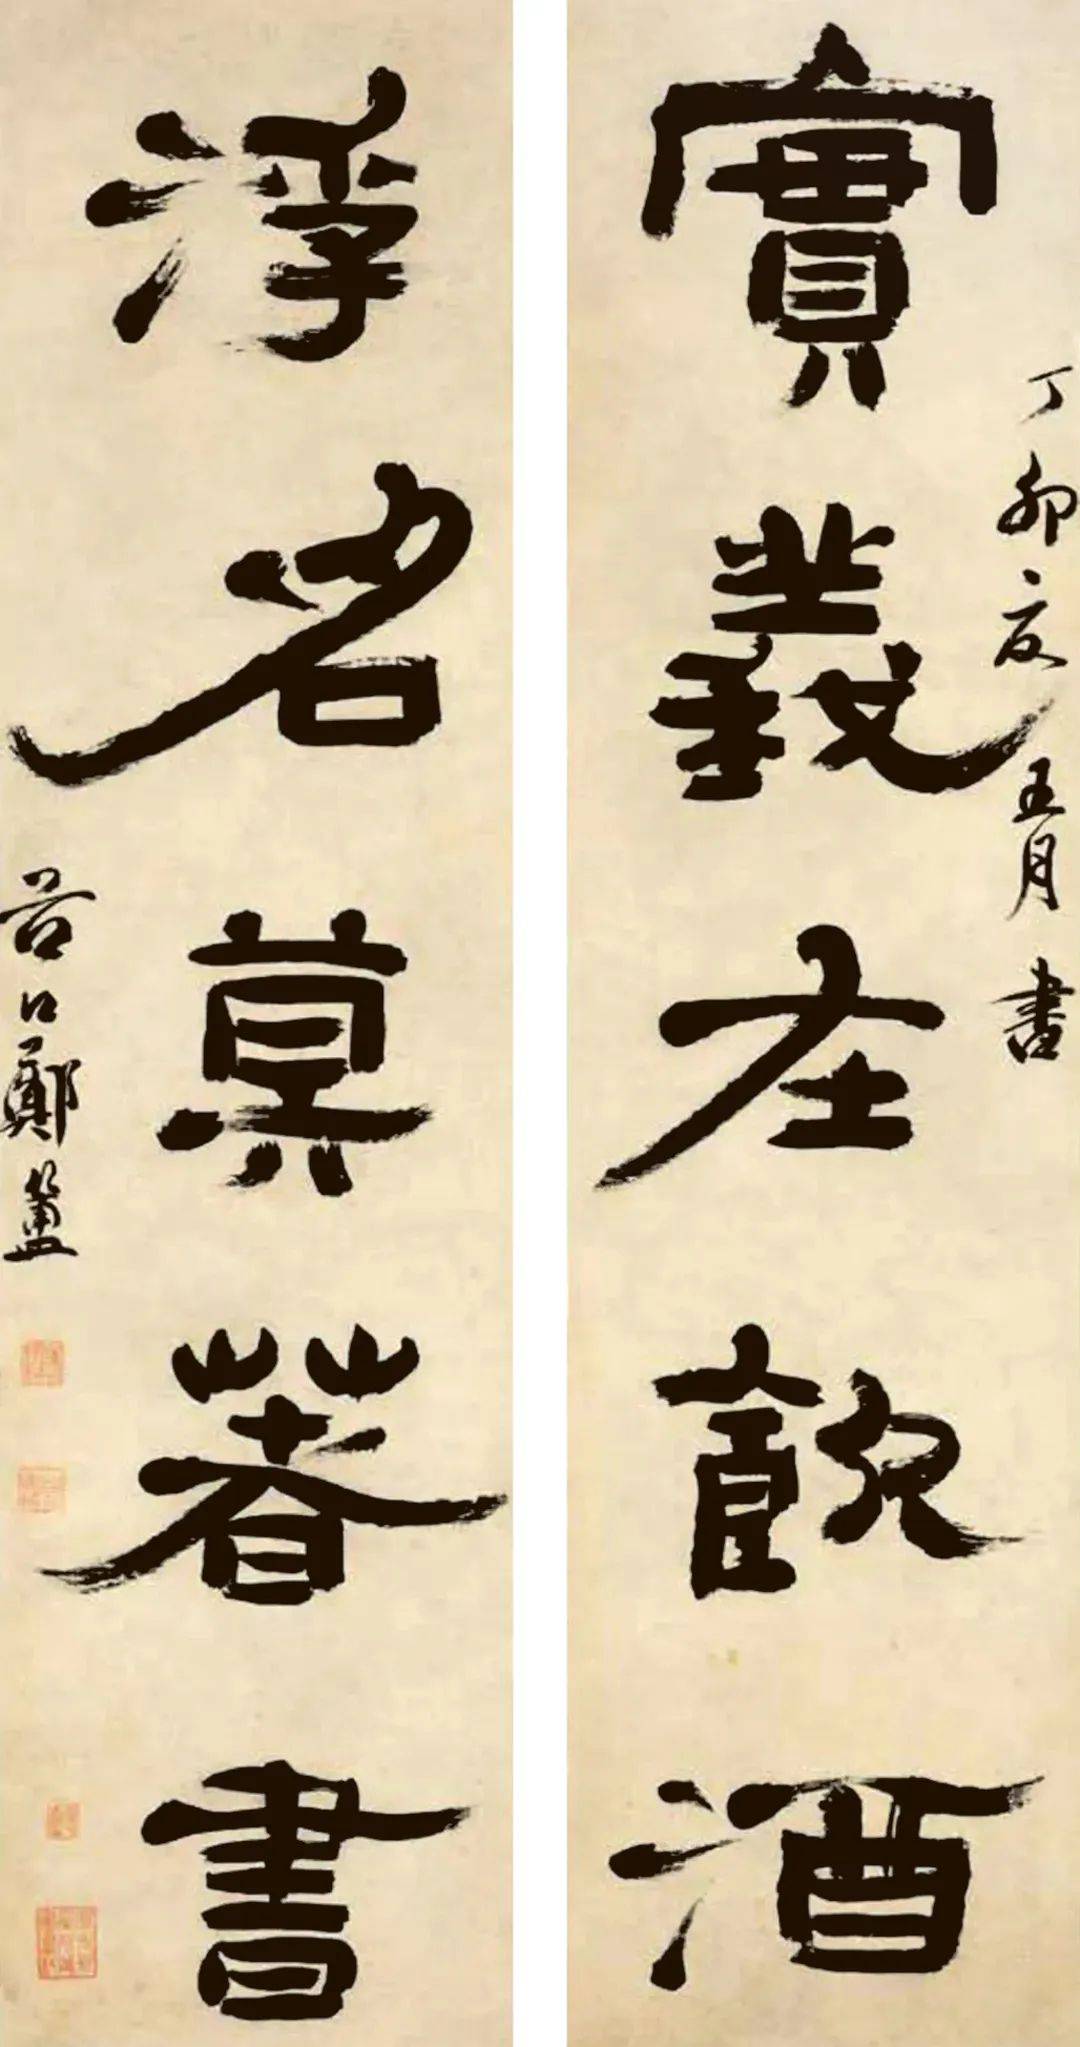 實義在飲酒
丁卯夏五月書
浮名莫著書
谷口鄭簠